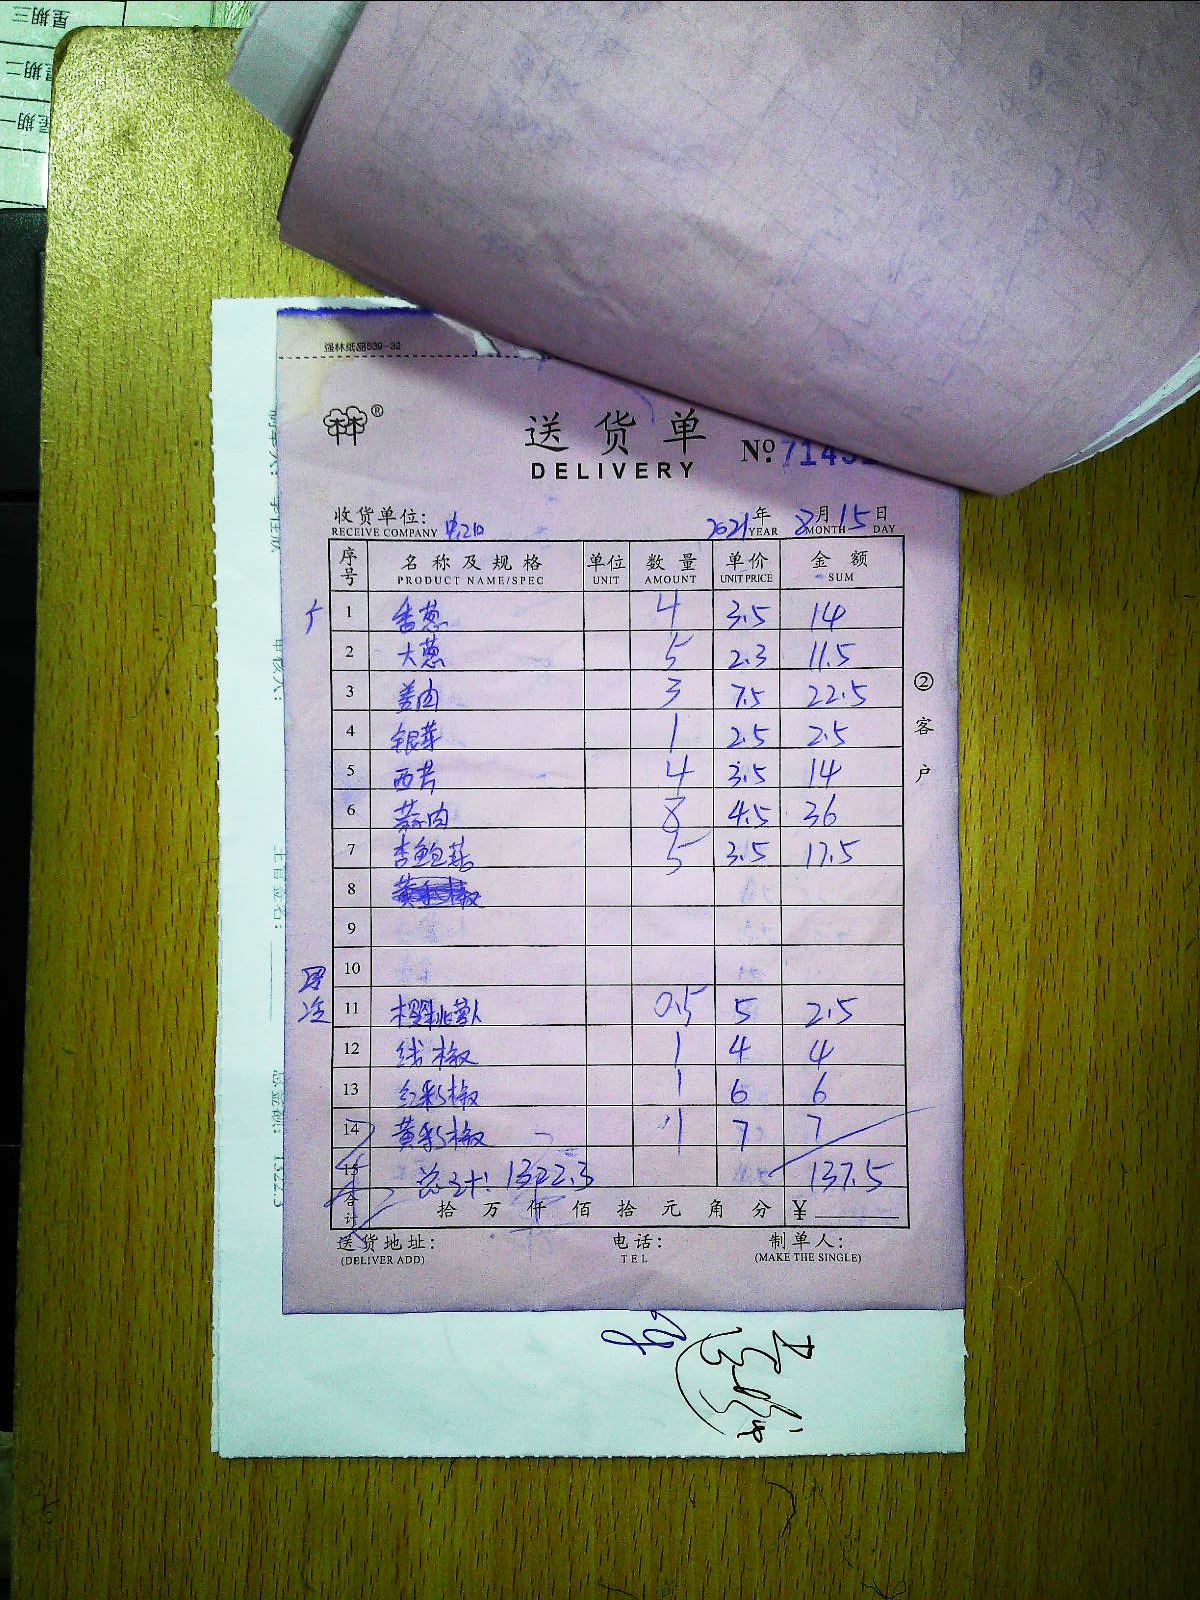 星期三
星期二
星期一
强林纸品539-32
林®
送货单 No. 7145
DELIVERY
收货单位: 2021年 8月15日
RECEIVE COMPANY YEAR MONTH DAY
序号 名称及规格 单位 数量 单价 金额
PRODUCT NAME/SPEC UNIT AMOUNT UNIT PRICE SUM
1 香葱 4 3.5 14
2 大葱 5 2.3 11.5
3 姜肉 3 7.5 22.5
4 银芽 1 2.5 2.5
5 西芹 4 3.5 14
6 蒜肉 8 4.5 36
7 杏鲍菇 5 3.5 17.5
8 黄彩椒
9
10
11 0.5 5 2.5
12 线椒 1 4 4
13 红彩椒 1 6 6
14 黄彩椒 1 7 7
15 总计: 1322.3 137.5
合计 拾 万 仟 佰 拾 元 角 分 ¥
送货地址: 电话: 制单人:
(DELIVER ADD) TEL (MAKE THE SINGLE)
② 客户
总金额: 1322.3